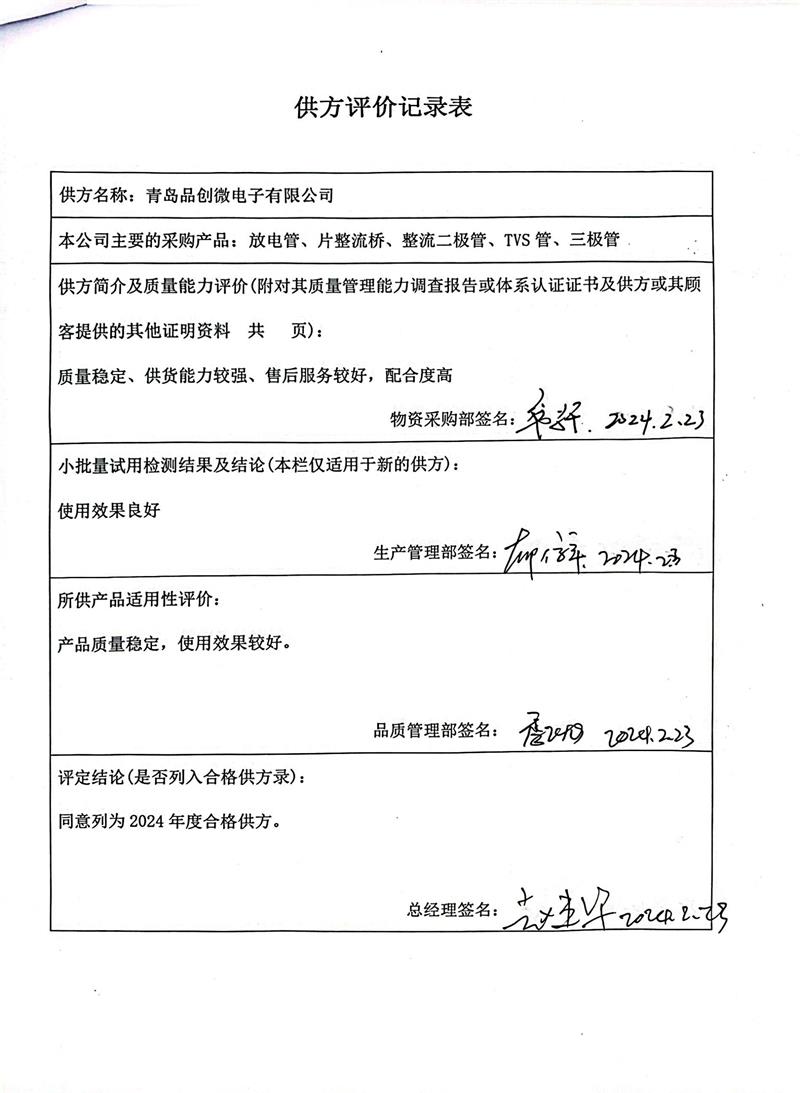 供方评价记录表
供方名称：青岛品创微电子有限公司
本公司主要的采购产品：放电管、片整流桥、整流二极管、TVS管、三极管
供方简介及质量能力评价(附对其质量管理能力调查报告或体系认证证书及供方或其顾
客提供的其他证明资料 共 页)：
质量稳定、供货能力较强、售后服务较好，配合度高
物资采购部签名： 2024.2.23
小批量试用检测结果及结论(本栏仅适用于新的供方)：
使用效果良好
生产管理部签名： 2024.2.23
所供产品适用性评价：
产品质量稳定，使用效果较好。
品质管理部签名： 2024.2.23
评定结论(是否列入合格供方录)：
同意列为2024年度合格供方。
总经理签名： 2024.2.23